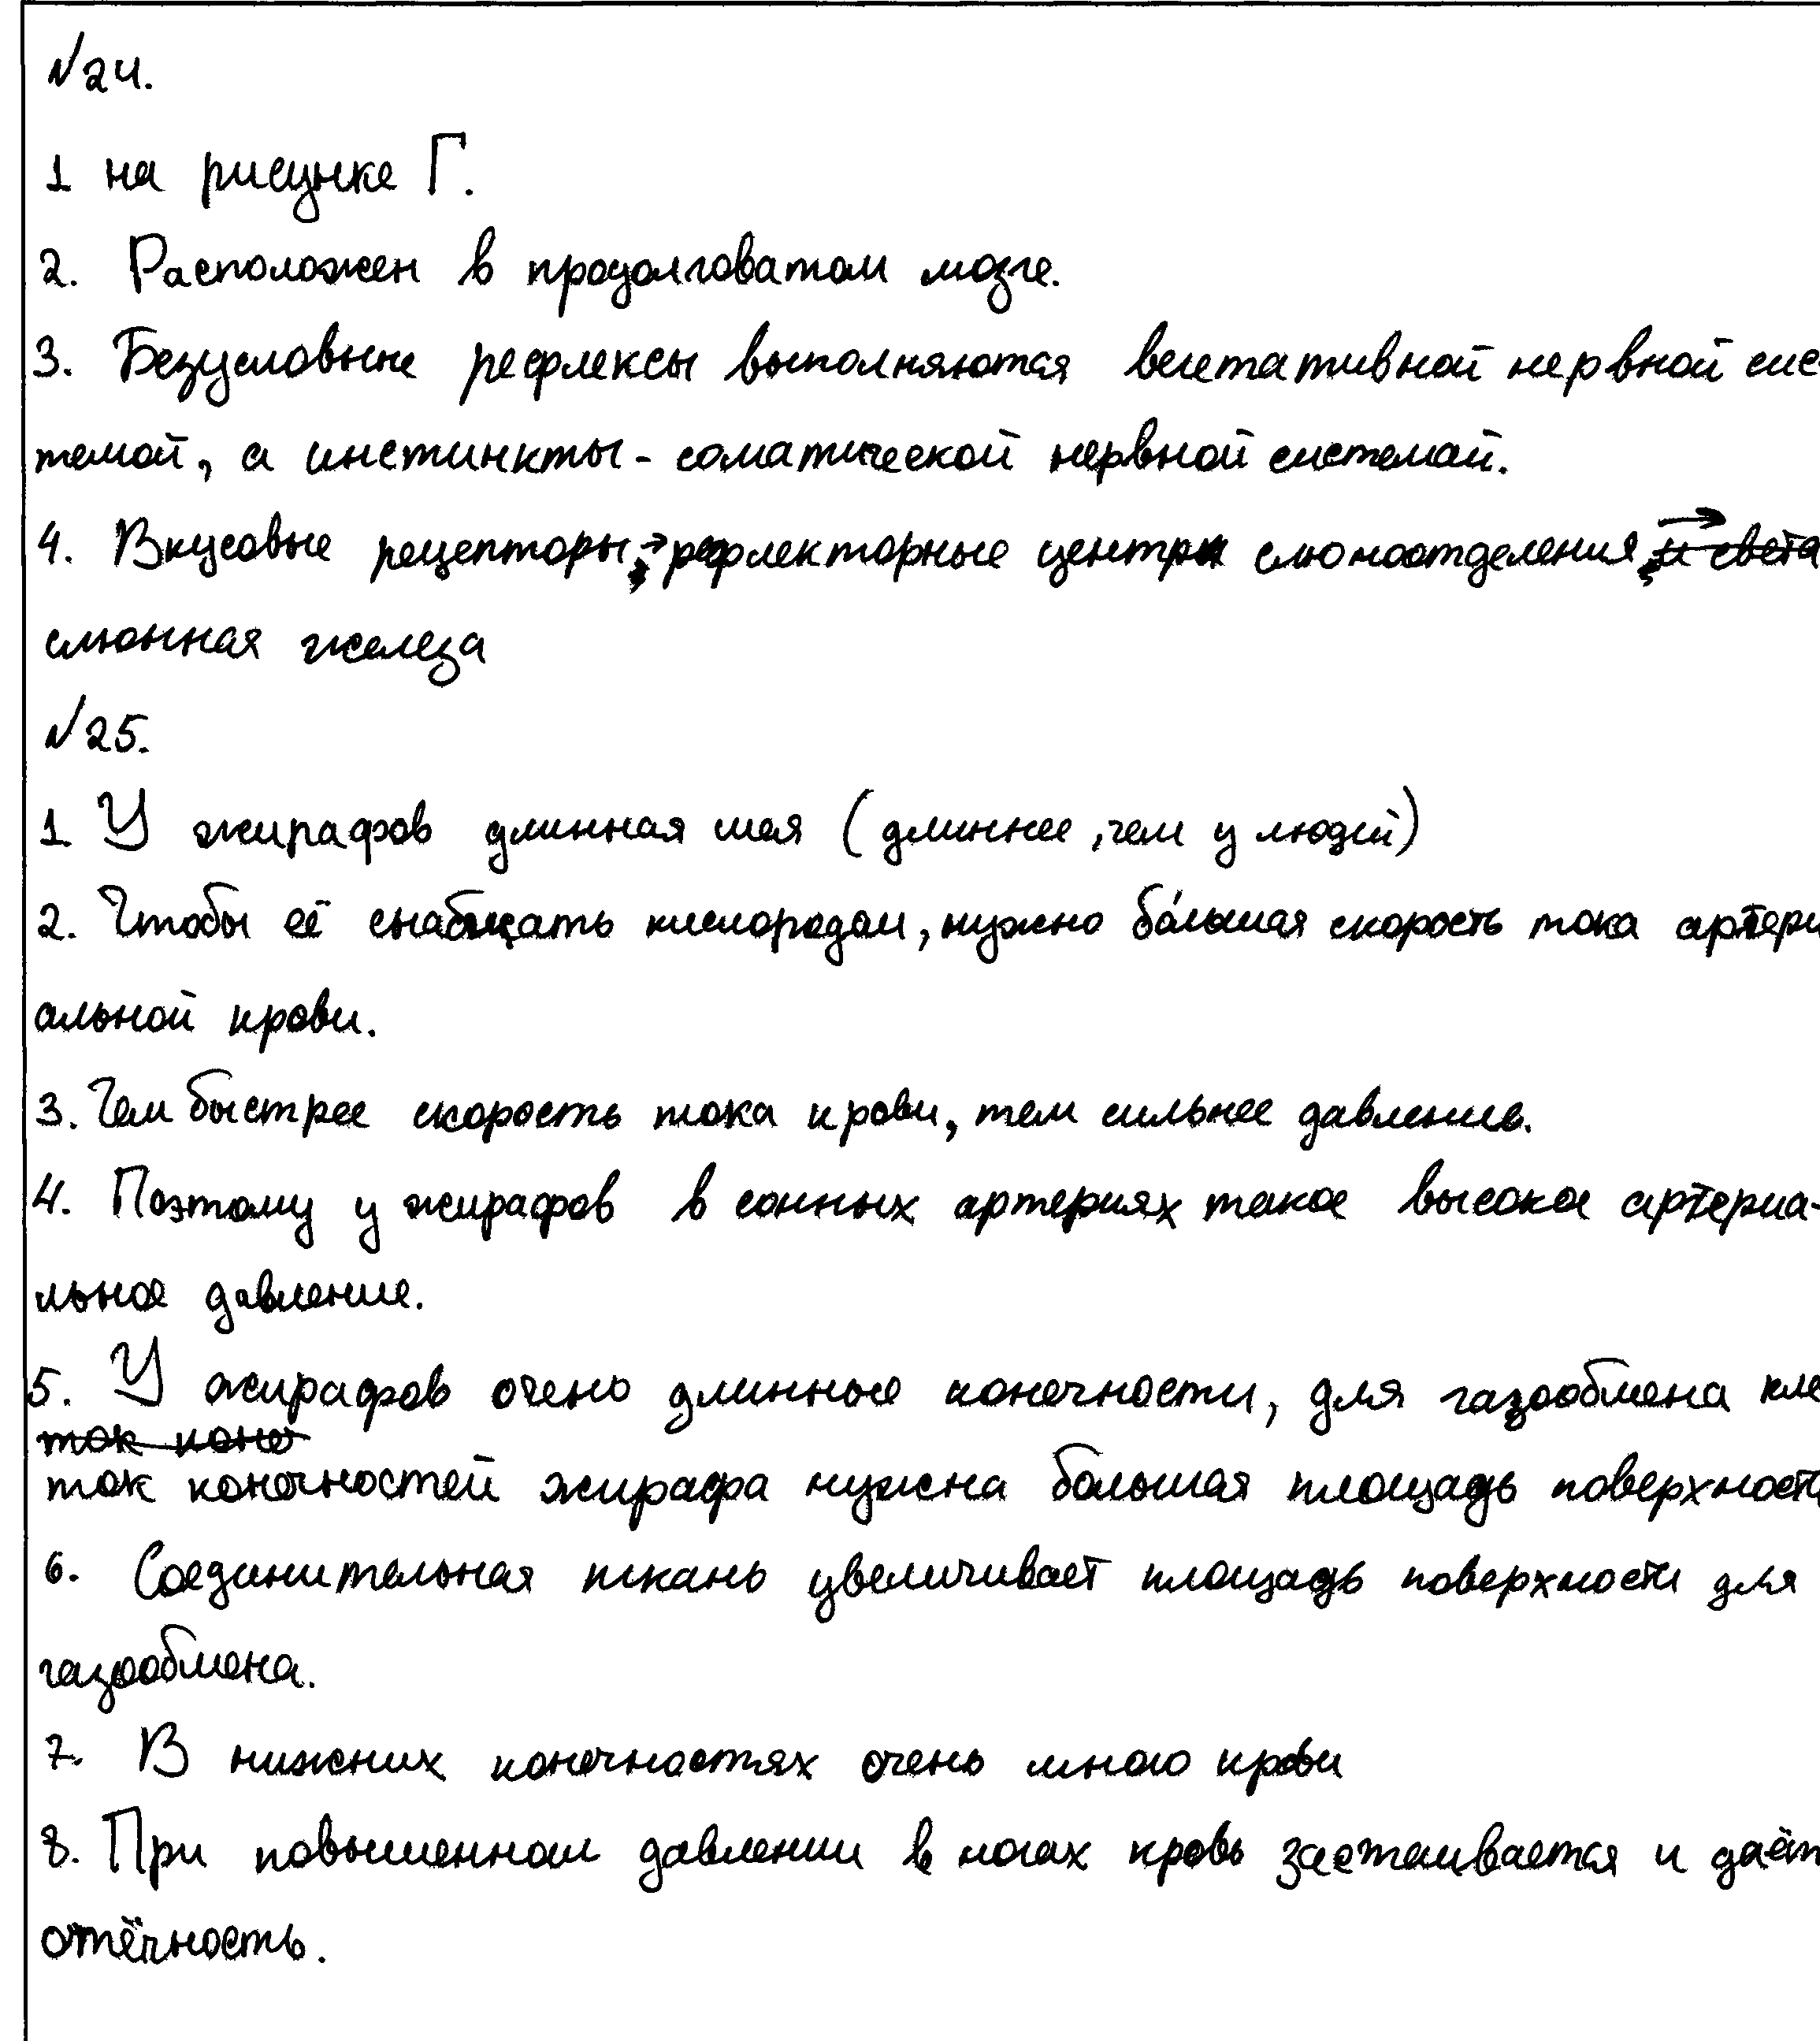 №24.
1 на рисунке Г.
2. Расположен в продолговатом мозге.
3. Безусловные рефлексы выполняются вегетативной нервной сис-
темой, а инстинкты - соматической нервной системой.
4. Вкусовые рецепторы → рефлекторные центры слюноотделения →
слюнная железа
№25.
1 У жирафов длинная шея (длиннее, чем у людей)
2. Чтобы её снабжать кислородом, нужно бо́льшая скорость тока артери
альной крови.
3. Чем быстрее скорость тока крови, тем сильнее давление.
4. Поэтому у жирафов в сонных артериях такое высокое артериа-
льное давление.
5. У жирафов очень длинные конечности, для газообмена кле
ток конечностей жирафа нужна большая площадь поверхности
6. Соединительная ткань увеличивает площадь поверхности для
газообмена.
7. В нижних конечностях очень много крови
8. При повышенном давлении в ногах кровь застаивается и даёт
отёчность.